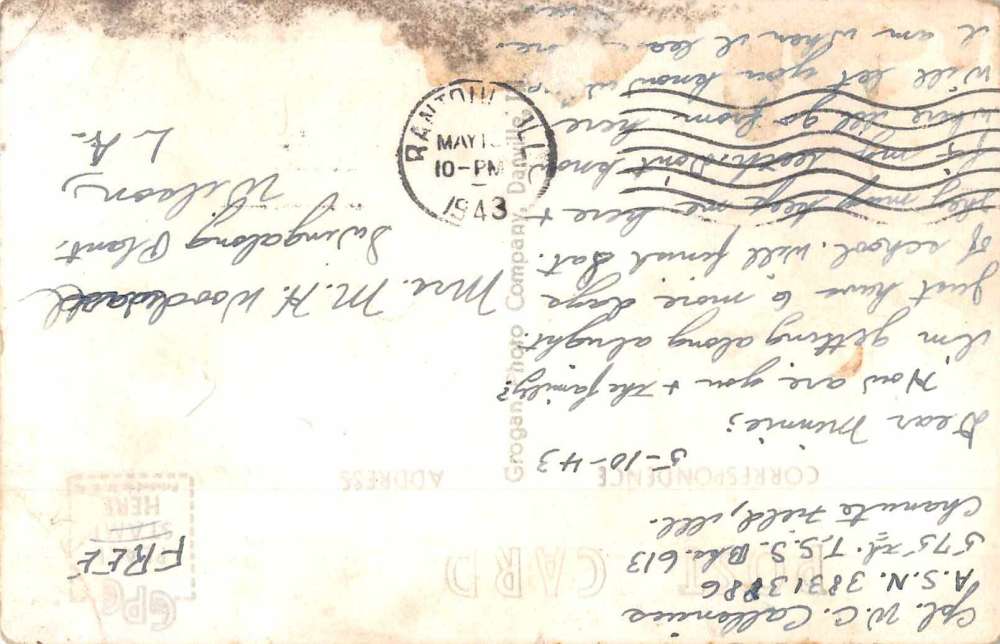 Cpl. W. C.
A.S.N. 38313886
575th T.S.S. Bks. 613
Chanute Field, Ill.
5-10-43
Dear Minnie;
How are you + the family?
I'm getting along alright.
Just have 6 more days
of school. Will finish Sat.
They may keep me here +
fix my teeth. Don't know
where I'll go from here
Will let you know
I am when I
FREE
Mrs. M. H.
Swingalong Plant.
Wilson,
LA.
POST CARD
CORRESPONDENCE
ADDRESS
GPC
STAMP
HERE
Grogan Photo Company, Danville,
RANTOUL ILL
MAY
10-PM
1943